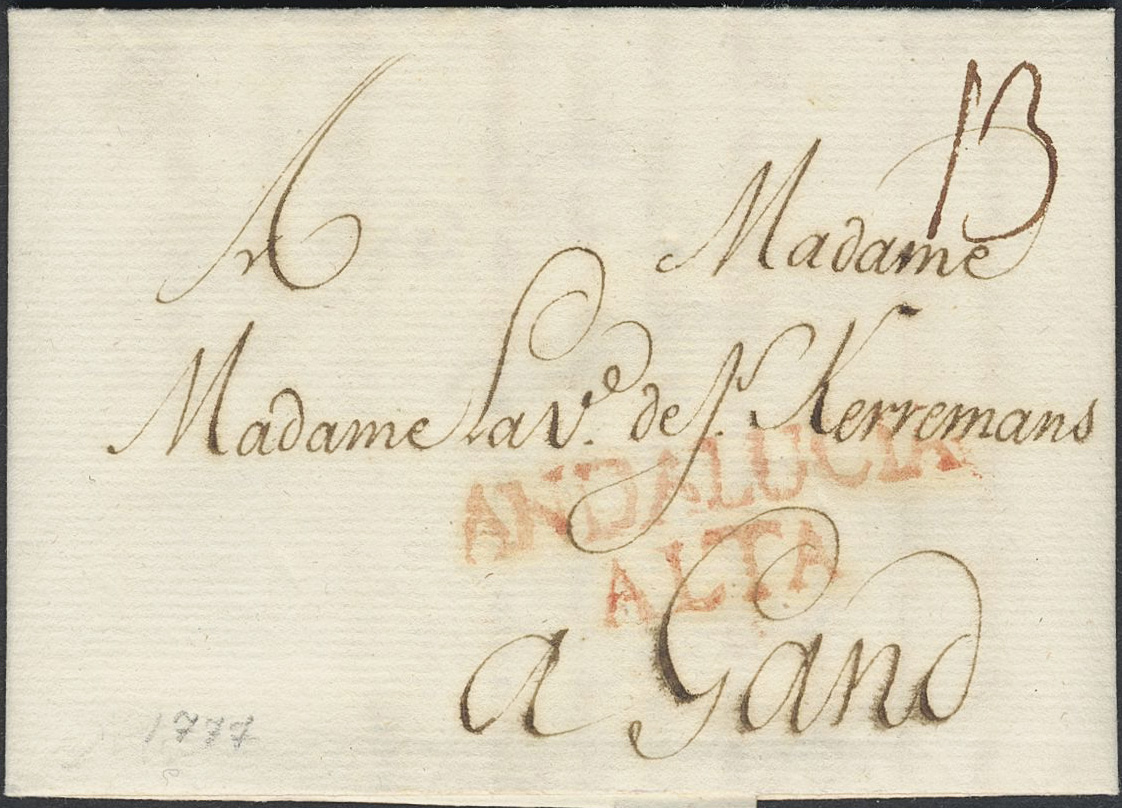 13
Madame
Madame La Vᵉ. de J. Kerremans
ANDALUCIA
ALTA
a Gand
1777